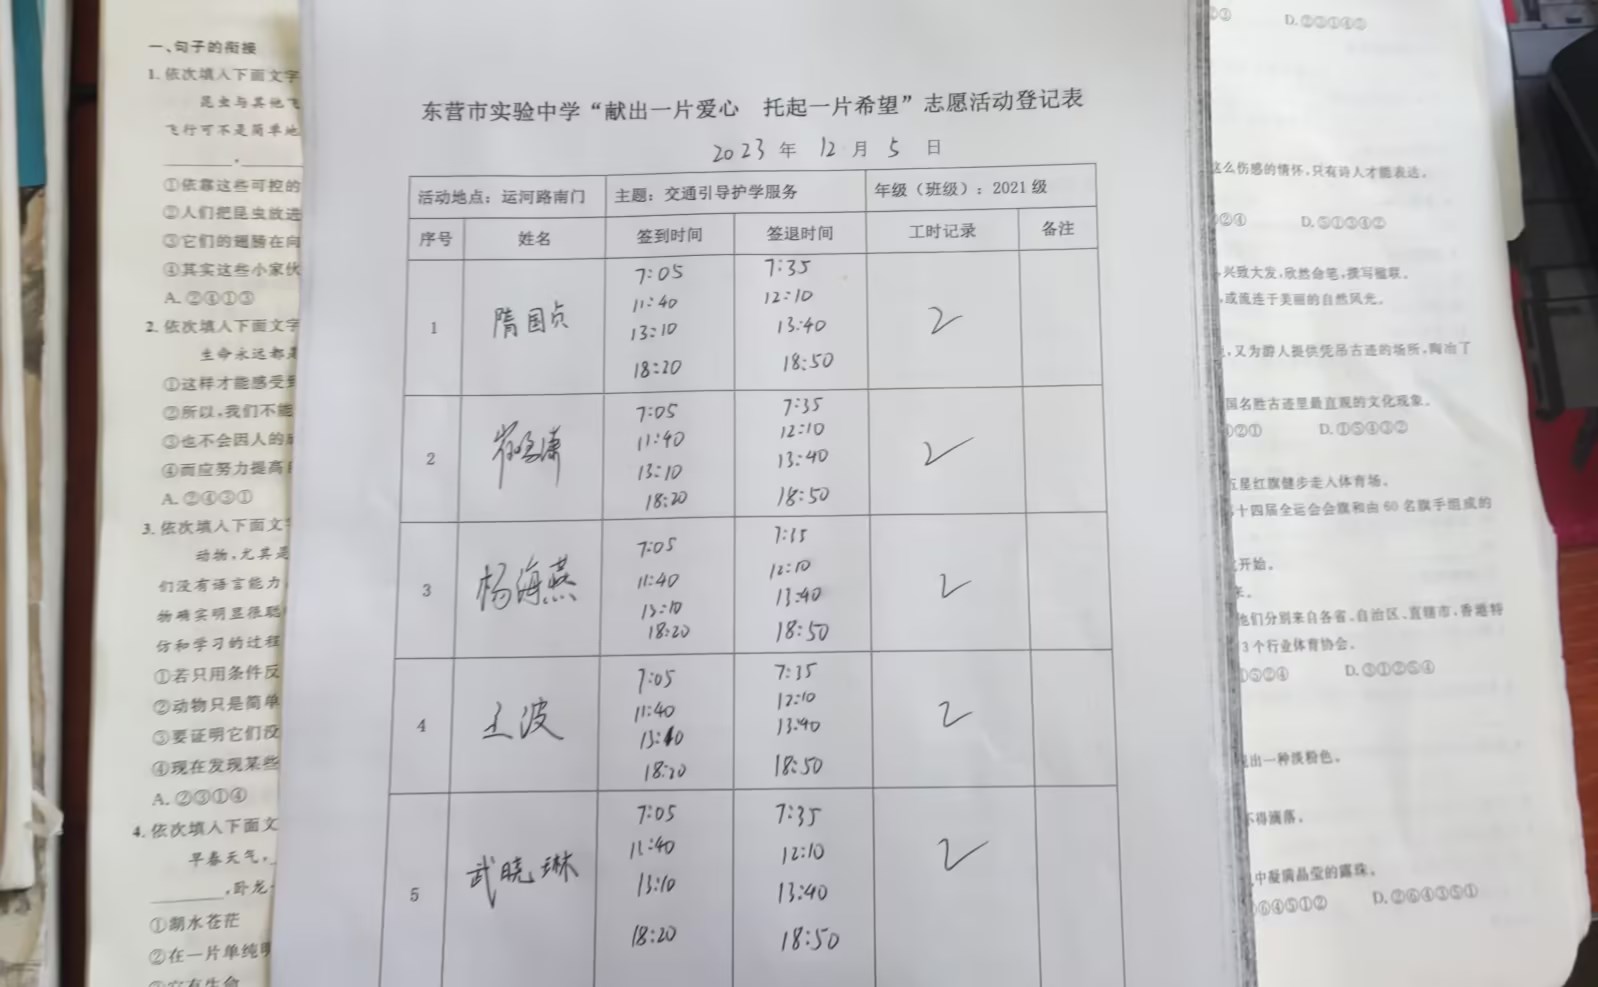 东营市实验中学“献出一片爱心 托起一片希望”志愿活动登记表
2023年 12月 5日
活动地点：运河路南门 主题：交通引导护学服务 年级（班级）：2021级
序号 姓名 签到时间 签退时间 工时记录 备注
1 隋国贞 2
7:05 7:35
11:40 12:10
13:10 13:40
18:20 18:50
2 2
7:05 7:35
11:40 12:10
13:10 13:40
18:20 18:50
3 杨海燕 2
7:05 7:35
11:40 12:10
13:10 13:40
18:20 18:50
4 王波 2
7:05 7:35
11:40 12:10
13:10 13:40
18:20 18:50
5 武晓琳 2
7:05 7:35
11:40 12:10
13:10 13:40
18:20 18:50
一、句子的衔接
1. 依次填入下面文字
昆虫与其他飞
飞行可不是简单地
①依靠这些可控的
②人们把昆虫放进
③它们的翅膀在向
④其实这些小家伙
A. ②④①③
2. 依次填入下面文字
生命永远都是
①这样才能感受到
②所以，我们不能
③也不会因人的
④而应努力提高
A. ②④③①
3. 依次填入下面文字
动物，尤其是
们没有语言能力
物确实明显很聪
仿和学习的过程
①若只用条件反
②动物只是简单
③要证明它们没
④现在发现某些
A. ②③①④
4. 依次填入下面文
早春天气，
，卧龙
①湖水苍茫
②在一片单纯
这么伤感的情怀，只有诗人才能表达。
②④ D. ⑤①③④②
，兴致大发，欣然命笔，撰写楹联。
，或流连于美丽的自然风光。
，又为游人提供凭吊古迹的场所，陶冶了
国名胜古迹里最直观的文化现象。
②① D. ①⑤④③②
五星红旗健步走入体育场。
十四届全运会会旗和由60名旗手组成的
开始。
来。
他们分别来自各省、自治区、直辖市、香港特
3个行业体育协会。
⑤②④ D. ③①②⑤④
出一种淡粉色。
不得滴落。
中凝满晶莹的露珠。
⑥④⑤①② D. ②⑥④③⑤①